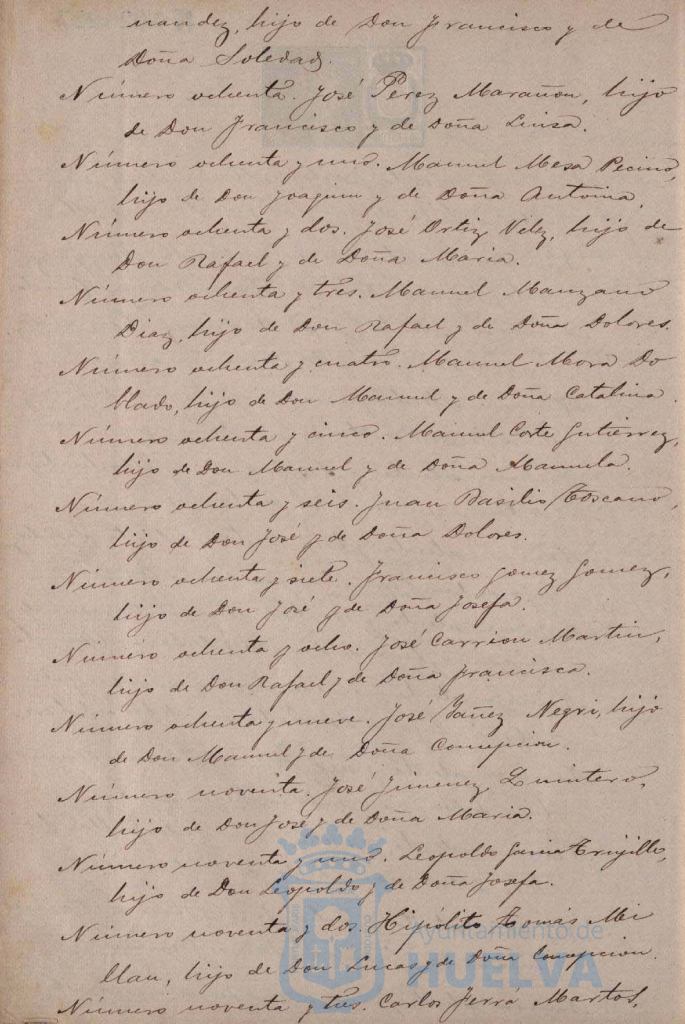 nandez, hijo de Don Francisco y de
Doña Soledad.
Número ochenta. José Perez Marañon, hijo
de Don Francisco y de Doña Luisa.
Número ochenta y uno. Manuel Mesa Pecino,
hijo de Don Joaquin y de Doña Antonia.
Número ochenta y dos. José Ortiz Velez, hijo de
Don Rafael y de Doña Maria.
Número ochenta y tres. Manuel Manzano
Diaz, hijo de Don Rafael y de Doña Dolores.
Número ochenta y cuatro. Manuel Mora Do
blado, hijo de Don Manuel y de Doña Catalina.
Número ochenta y cinco. Manuel Corte Gutierrez,
hijo de Don Manuel y de Doña Manuela.
Número ochenta y seis. Juan Basilio Toscano,
hijo de Don José y de Doña Dolores.
Número ochenta y siete. Francisco Gomez Gomez,
hijo de Don José y de Doña Josefa.
Número ochenta y ocho. José Carrion Martin,
hijo de Don Rafael y de Doña Francisca.
Número ochenta y nueve. José Yañez Negri, hijo
de Don Manuel y de Doña Concepcion.
Número noventa. José Jimenez Quintero,
hijo de Don José y de Doña Maria.
Número noventa y uno. Leopoldo Garcia Trujillo,
hijo de Don Leopoldo y de Doña Josefa.
Número noventa y dos. Hipólito Tomás Mi
llan, hijo de Don Lucas y de Doña Concepcion.
Número noventa y tres. Carlos Martos,
Ayuntamiento de
HUELVA